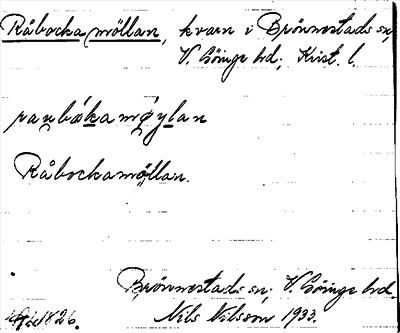 Råbocka möllan, kvarn i Brönnestads sn,
V. Göinge hd; Krist. l.
raųbákamǿylan
Råbockamöllan.
Brönnestads sn; V. Göinge hd.
1826. Nils Nilsson 1933.